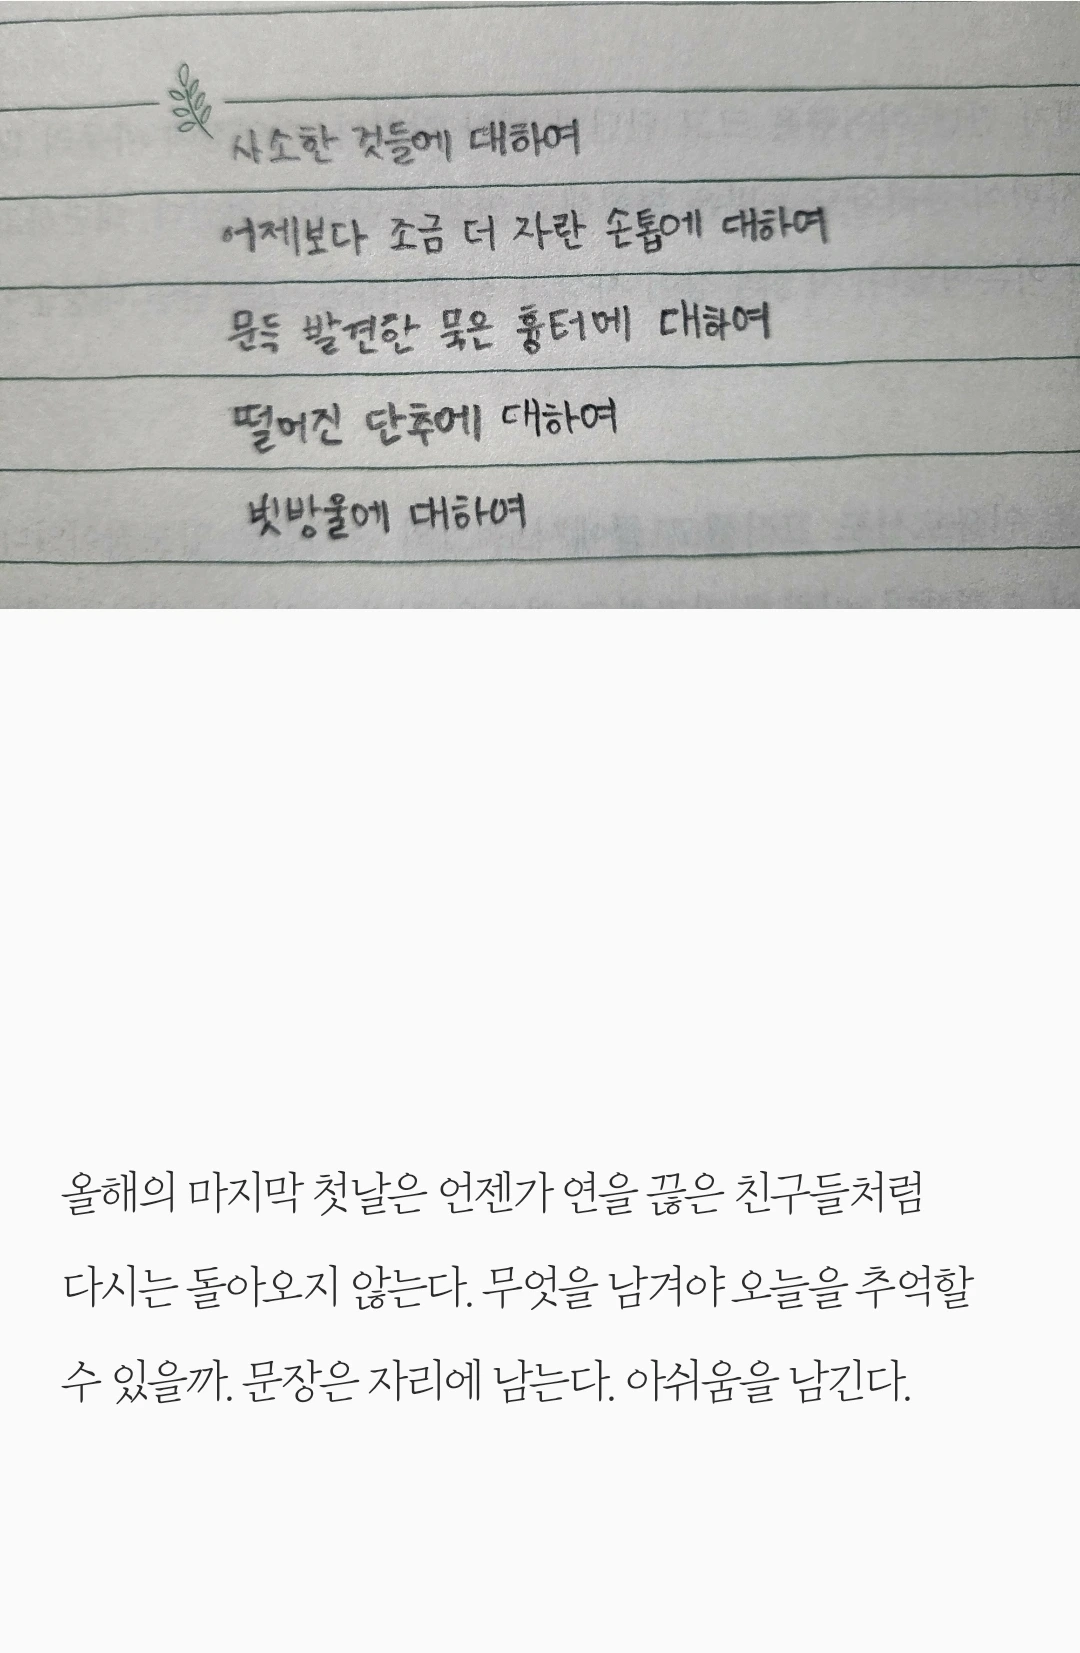 사소한 것들에 대하여
어제보다 조금 더 자란 손톱에 대하여
문득 발견한 묵은 흉터에 대하여
떨어진 단추에 대하여
빗방울에 대하여
올해의 마지막 첫날은 언젠가 연을 끊은 친구들처럼
다시는 돌아오지 않는다. 무엇을 남겨야 오늘을 추억할
수 있을까. 문장은 자리에 남는다. 아쉬움을 남긴다.